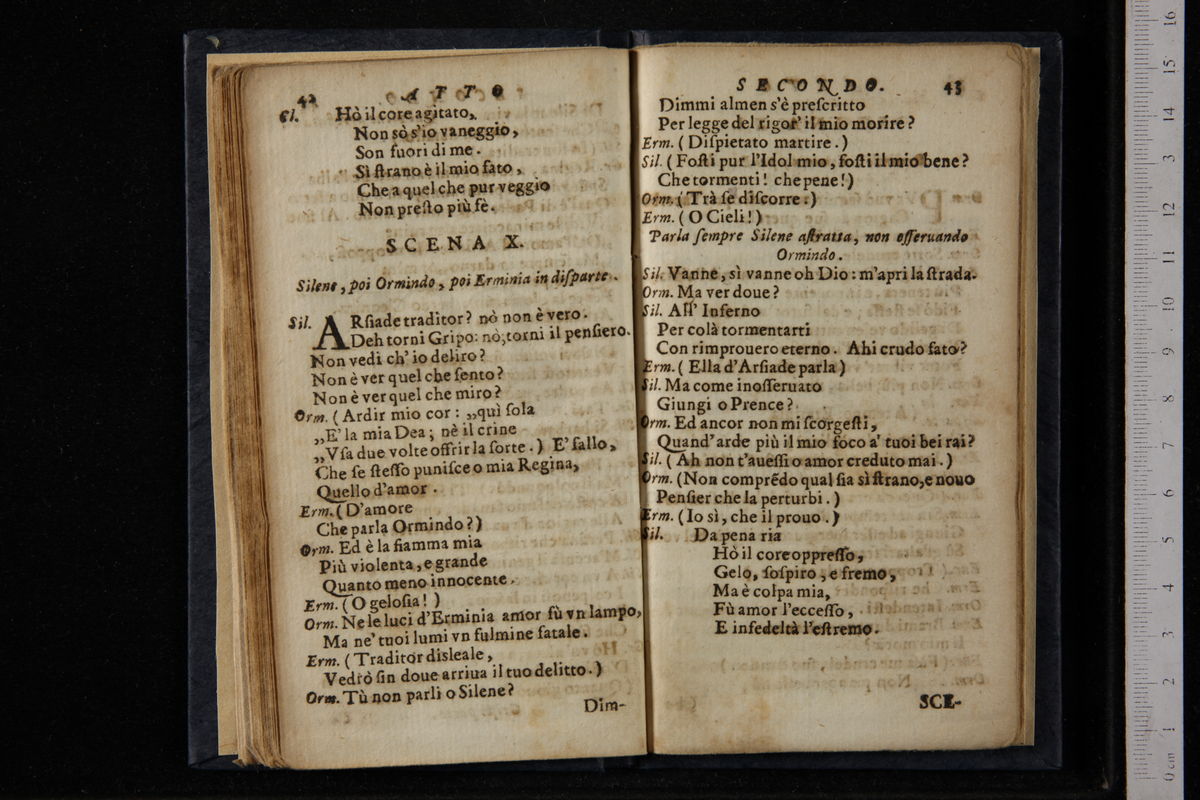 42 ATTO
Cl. Hò il core agitato,
Non sò s'io vaneggio,
Son fuori di me.
Sì ſtrano è il mio fato,
Che a quel che pur veggio
Non preſto più fè.
SCENA X.
Silene, poi Ormindo, poi Erminia in diſparte.
Sil. ARſiade traditor? nò non è vero.
Deh torni Gripo: nò, torni il penſiero.
Non vedi ch' io deliro?
Non è ver quel che ſento?
Non è ver quel che miro?
Orm. (Ardir mio cor: „quì ſola
„E' la mia Dea; nè il crine
„Vſa due volte offrir la ſorte.) E' fallo,
Che ſe ſteſſo puniſce o mia Regina,
Quello d'amor.
Erm. (D'amore
Che parla Ormindo?)
Orm. Ed è la fiamma mia
Più violenta, e grande
Quanto meno innocente.
Erm. (O geloſia!)
Orm. Ne le luci d'Erminia amor fù vn lampo,
Ma ne' tuoi lumi vn fulmine fatale.
Erm. (Traditor disleale,
Vedrò fin doue arriua il tuo delitto.)
Orm. Tù non parli o Silene?
Dim-
SECONDO. 43
Dimmi almen s'è preſcritto
Per legge del rigor' il mio morire?
Erm. (Diſpietato martire.)
Sil. (Foſti pur l'Idol mio, foſti il mio bene?
Che tormenti! che pene!)
Orm. (Trà ſe diſcorre.)
Erm. (O Cieli!)
Parla ſempre Silene aſtratta, non oſſeruando
Ormindo.
Sil. Vanne, sì vanne oh Dio: m'apri la ſtrada.
Orm. Ma ver doue?
Sil. All' Inferno
Per colà tormentarti
Con rimprouero eterno. Ahi crudo fato?
Erm. (Ella d'Arſiade parla)
Sil. Ma come inoſſeruato
Giungi o Prence?
Orm. Ed ancor non mi ſcorgeſti,
Quand' arde più il mio foco a' tuoi bei rai?
Sil. (Ah non t'aueſſi o amor creduto mai.)
Orm. (Non comprẽdo qual ſia sì ſtrano, e nouo
Penſier che la perturbi.)
Erm. (Io sì, che il prouo.)
Sil. Da pena ria
Hò il core oppreſſo,
Gelo, ſoſpiro, e fremo,
Ma è colpa mia,
Fù amor l'ecceſſo,
E infedeltà l'eſtremo.
SCE-
16
15
14
13
12
11
10
9
8
7
6
5
4
3
2
1
0 cm